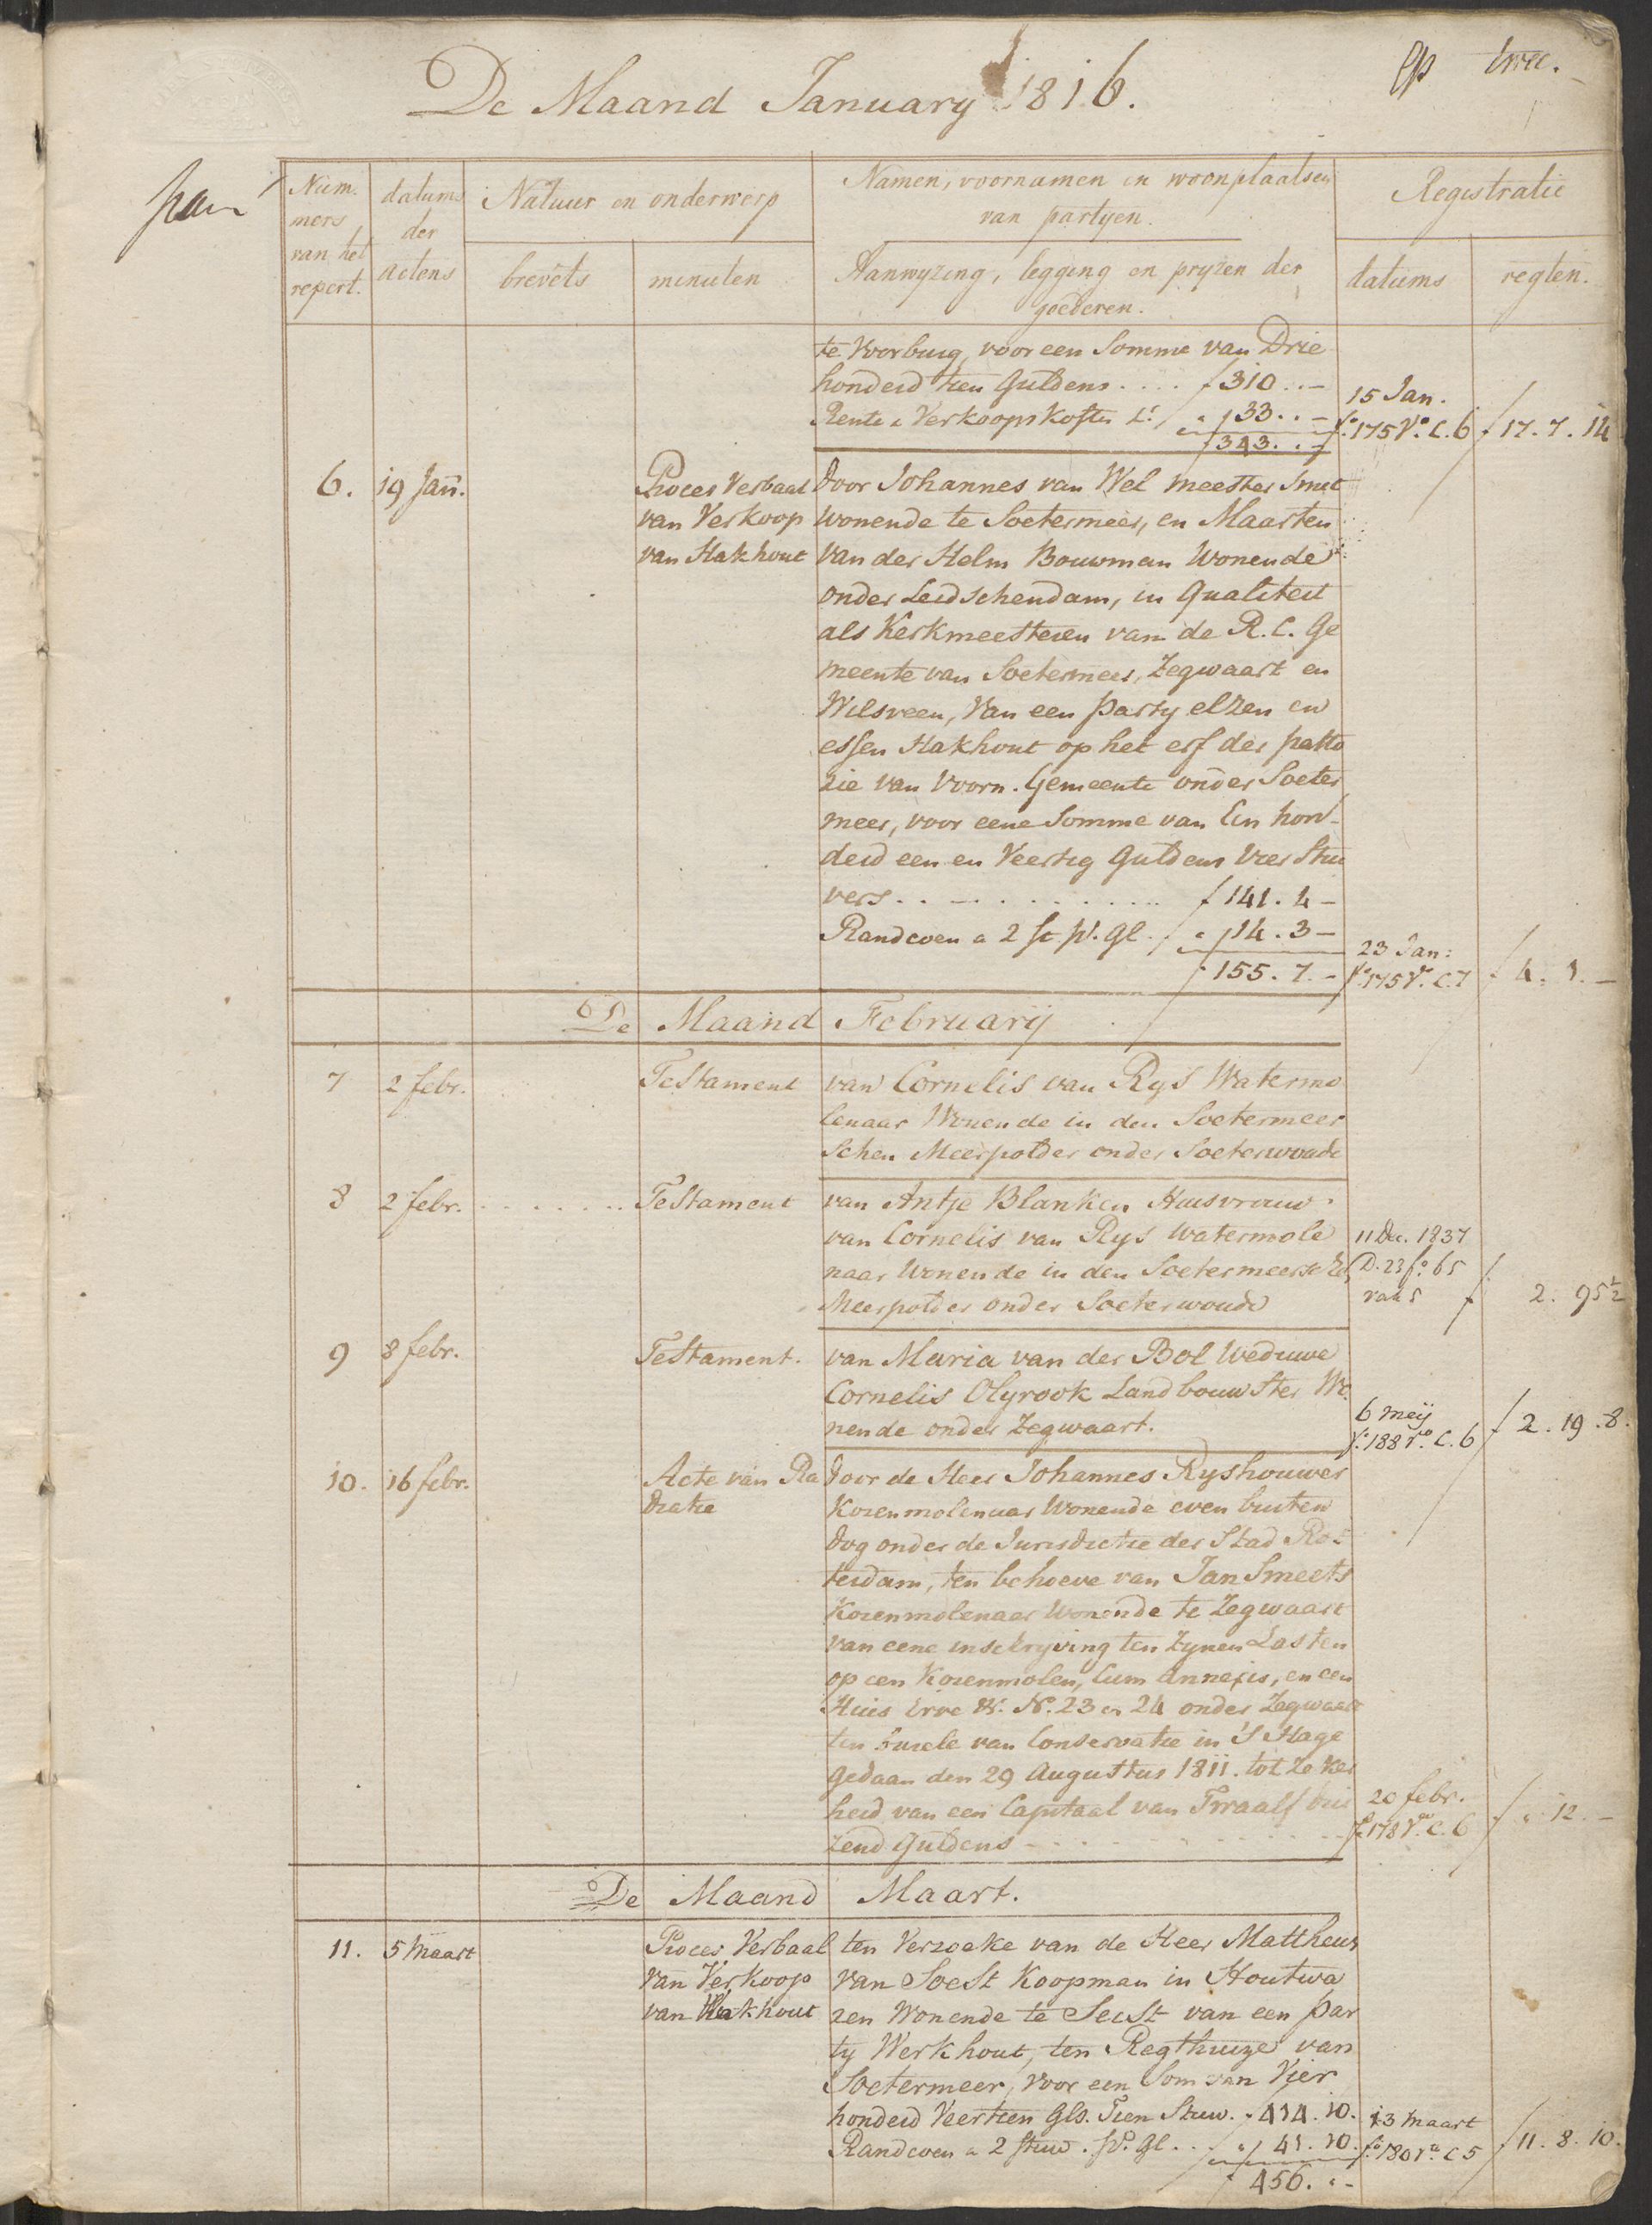 De Maand January 1816.
Op twee.
Nummers van het repert.
datums der actens
Natuur en onderwerp
brevets
minuten
Namen, voornamen en woonplaatsen van partyen.
Aanwyzing, legging en pryzen der goederen.
Registratie
datums
regten.
te Voorburg, voor een Somme van Drie
honderd tien Guldens .... f 310 .. -
Rente & Verkoops Kosten " 33 .. -
f 343 .. -
15 Jan.
fo. 175 Vo. C. 6 f 17. 7. 14
6. 19 Jan. Proces Verbaal door Johannes van Wel meester Smit
van Verkoop Wonende te Soetermeer, en Maarten
van Hakhout van der Helm Bouwman Wonende
onder Leidschendam, in Qualiteit
als Kerkmeesteren van de R. C. Ge
meente van Soetermeer, Zegwaart en
Wilsveen, Van een party elzen en
essen Hakhout op het erf der pasto
rie van Voorn. Gemeente onder Soeter
meer, voor eene Somme van Een hon-
derd een en Veertig Guldens Vier Stui
vers ........... f 141. 4 -
Randcoen a 2 st pr. gl. " 14. 3 -
f 155. 7. -
23 Jan:
fo. 175 Vo. C. 7 f 4. 1. -
De Maand February
7 2 febr. Testament van Cornelis van Rys Watermo
lenaar Wonende in den Soetermeer
schen Meerpolder onder Soeterwoude
8 2 febr. ....... Testament van Antje Blanken Huisvrouw
van Cornelis van Rys Watermole
naar Wonende in den Soetermeerse
Meerpolder onder Soeterwoude
11 Dec. 1837
D. 23 fo. 65
vak 5 f 2. 95½
9 8 febr. Testament. van Maria van der Bol Weduwe
Cornelis Olyrook Landbouwster Wo
nende onder Zegwaart.
6 Meij
fo. 188 ro. C. 6 f 2. 19. 8.
10. 16 febr. Acte van Ra door de Heer Johannes Ryshouwer
diatie Korenmolenaar Wonende even buiten
dog onder de Jurisdictie der Stad Rot
terdam, ten behoeve van Jan Smeets
Korenmolenaar Wonende te Zegwaart
van eene inschryving ten Zynen Lasten
op een Korenmolen, Cum annexis, en een
Huis Erve &c. No. 23 en 24 onder Zegwaart
ten burele van Conservatie in 's Hage
gedaan den 29 Augustus 1811. tot Zeker
heid van een Capitaal van Twaalf dui
zend Guldens
20 febr.
fo. 178 Vo. C. 6 f " 12. -
De Maand Maart.
11. 5 Maart Proces Verbaal ten Verzoeke van de Heer Mattheus
van Verkoop van Soest Koopman in Houtwa
van Hakhout ren Wonende te Seist van een par
ty Werkhout, ten Regthuize van
Soetermeer, voor een Som van Vier
honderd Veertien Gls. Tien Stuiv. f 414. 10.
Randcoen a 2 stuiv. pr. Gl. .. " 41. 10.
f 456. " -
13 Maart
fo. 180 ro. C 5 f 11. 8. 10.